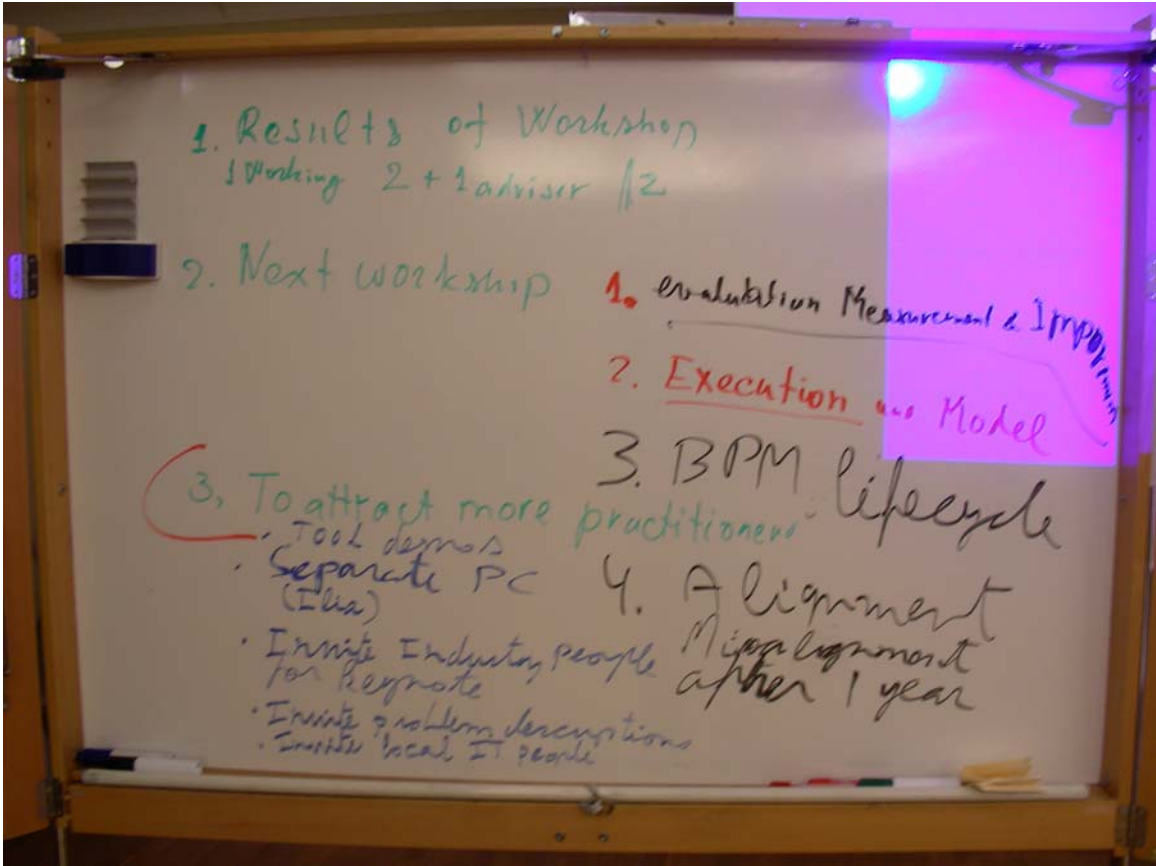 1. Results of Workshop
1 Working 2 + 1 adviser
2. Next workship
1. evalutation Measurement &
2. Execution Model
3. BPM lifecycle
4. Alignment
Misalignment
after 1 year
3. To attract more practitioners
· Tool demos
· Separate PC
(Ilia)
· Invite Industry people
for keynote
· Invite problem descriptions
· Invite local IT people